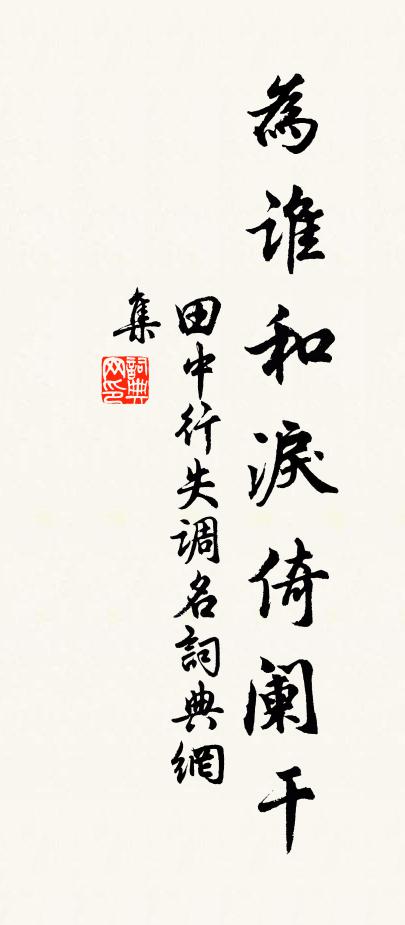 為誰和淚倚阑干
田中行失调名詞典網
集
詞典网印